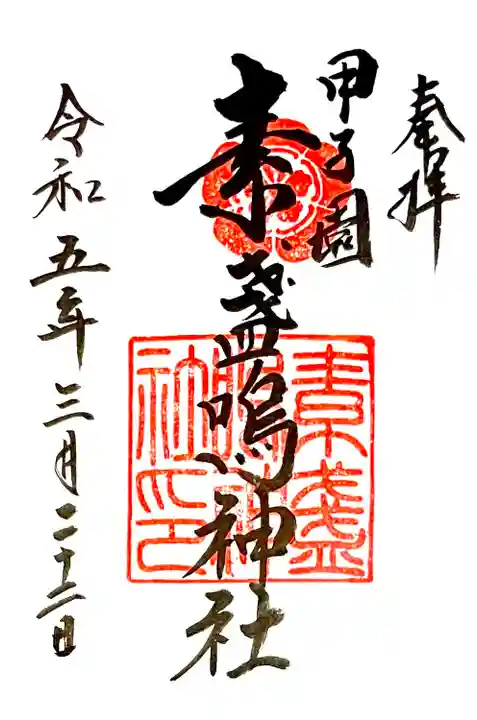 奉拝
甲子園
素盞嗚神社
令和五年三月二十二日
素盞
神
社印